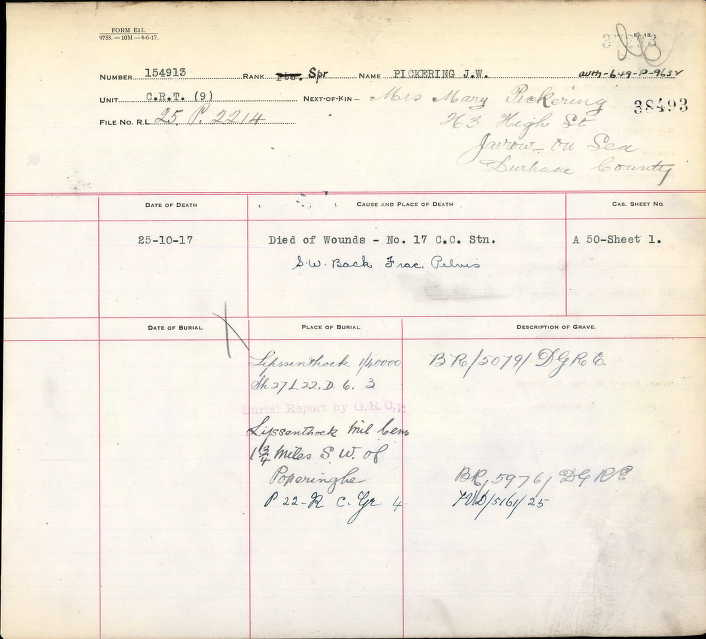 FORM E11.
9733.—10M—8-6-17.
NUMBER 154913 RANK Pte. Spr NAME PICKERING J.W. auth-649-P-9632
UNIT C.R.T. (9) NEXT-OF-KIN— Mrs Mary Pickering 38493
FILE NO. R.L. 25. P. 2214 High St
Jarrow-on Sea
Durham County
DATE OF DEATH CAUSE AND PLACE OF DEATH CAS. SHEET NO.
25-10-17 Died of Wounds - No. 17 C.C. Stn. A 50-Sheet 1.
S.W. Back, Frac. Pelvis
DATE OF BURIAL. PLACE OF BURIAL. DESCRIPTION OF GRAVE.
Lijssenthock 1/40000 BR/5079/DGRE
Sh 27 L.22.D. 6. 3
Burial Report by G.R.U.
Lijssenthock Mil Cem
1 3/4 Miles S.W. of
Poperinghe BR/5976/DGRE
P 22-R C. Gr 4 /5161/25